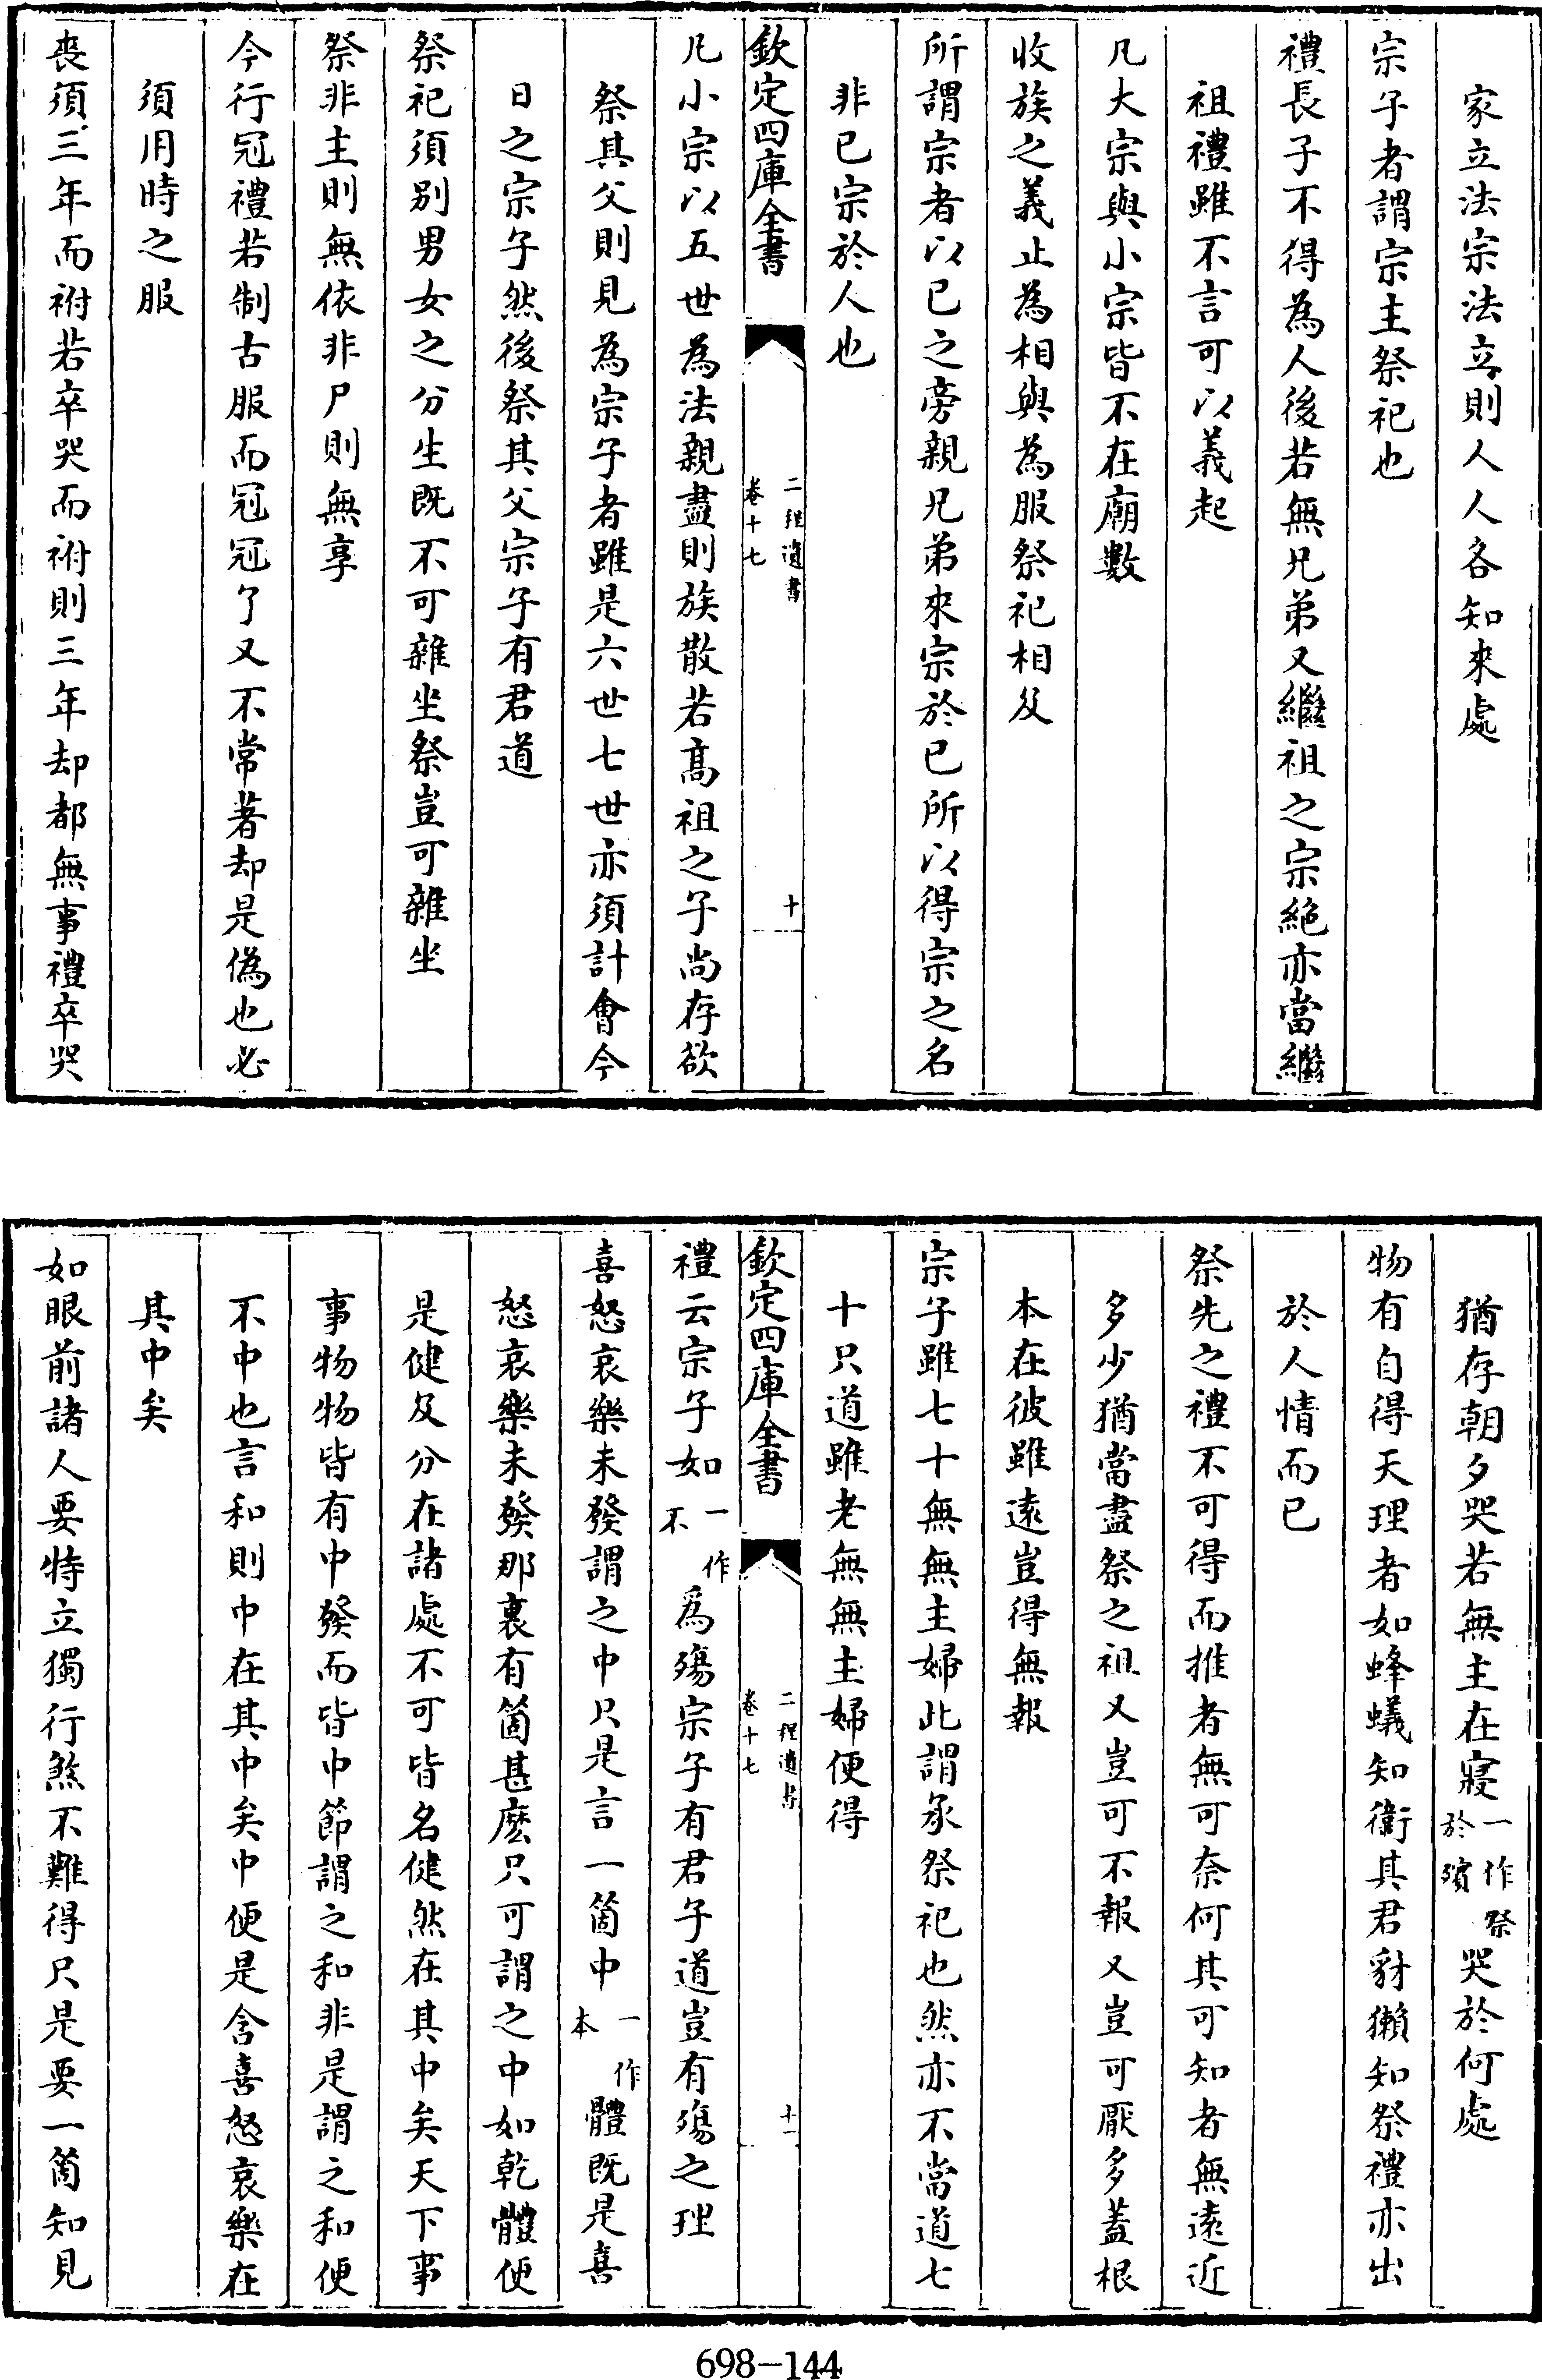 家立法宗法立則人人各知來處
宗子者謂宗主祭祀也
禮長子不得為人後若無兄弟又繼祖之宗絶亦當繼
祖禮雖不言可以義起
凡大宗與小宗皆不在廟數
收族之義止為相與為服祭祀相及
所謂宗者以已之旁親兄弟來宗於已所以得宗之名
非已宗於人也
欽定四庫全書
二程遺書
卷十七
十
凡小宗以五世為法親盡則族散若髙祖之子尚存欲
祭其父則見為宗子者雖是六世七世亦須計會今
日之宗子然後祭其父宗子有君道
祭祀須别男女之分生既不可雜坐祭豈可雜坐
祭非主則無依非尸則無享
今行冠禮若制古服而冠冠了又不常著却是偽也必
須用時之服
喪須三年而祔若卒哭而祔則三年却都無事禮卒哭
猶存朝夕哭若無主在寢一作祭於殯哭於何處
物有自得天理者如蜂蟻知衞其君豺獺知祭禮亦出
於人情而已
祭先之禮不可得而推者無可奈何其可知者無逺近
多少猶當盡祭之祖又豈可不報又豈可厭多蓋根
本在彼雖逺豈得無報
宗子雖七十無無主婦此謂承祭祀也然亦不當道七
十只道雖老無無主婦便得
欽定四庫全書
二程遺書
卷十七
十一
禮云宗子如一作不為殤宗子有君子道豈有殤之理
喜怒哀樂未發謂之中只是言一箇中一作本體既是喜
怒哀樂未發那裏有箇甚麽只可謂之中如乾體便
是健及分在諸處不可皆名健然在其中矣天下事
事物物皆有中發而皆中節謂之和非是謂之和便
不中也言和則中在其中矣中便是含喜怒哀樂在
其中矣
如眼前諸人要特立獨行煞不難得只是要一箇知見
698-144